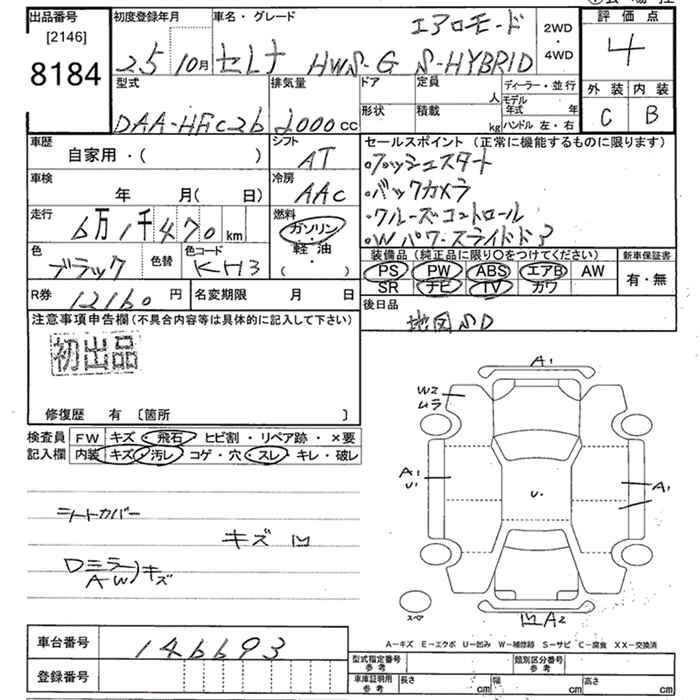 出品番号
[2146]
8184
初度登録年月
25 10月
車名・グレード
エアロモード
セレナ HWS-G S-HYBRID
2WD
・
4WD
評価点
4
外装 内装
C B
型式
DAA-HFC26
排気量
2000 cc
ドア
形状
定員
人
積載
kg
ディーラー・並行
モデル年式 年
ハンドル 左・右
車歴
自家用・( )
シフト
AT
車検
年 月( 日)
冷房
AAC
走行
6万1千470 km
燃料
ガソリン
・
軽・油
・
( )
色
ブラック
色替
色コード
KH3
R券
12160 円
名変期限 月 日
セールスポイント (正常に機能するものに限ります)
・プッシュスタート
・バックカメラ
・クルーズコントロール
・Wパワースライドドア
装備品 (純正品に限り○をつけてください)
PS PW ABS エアB AW
SR ナビ TV カワ
新車保証書
有・無
後日品
地図SD
注意事項申告欄 (不具合内容等は具体的に記入して下さい)
初出品
修復歴 有 〔箇所 〕
検査員
記入欄
FW キズ・飛石・ヒビ割・リペア跡・×要
内装 キズ・汚レ・コゲ・穴・スレ・キレ・破レ
シートカバー
キズ 凹
Dミラー
AW)キズ
A1
W2
ムラ
A1
U1
U.
A1
スペア
凹 A2
A－キズ E－エクボ U－凹み W－補修跡 S－サビ C－腐食 XX－交換済
車台番号
146693
登録番号
型式指定番号
参考
類別区分番号
参考
車庫証明用
参考
長さ cm
幅 cm
高さ cm